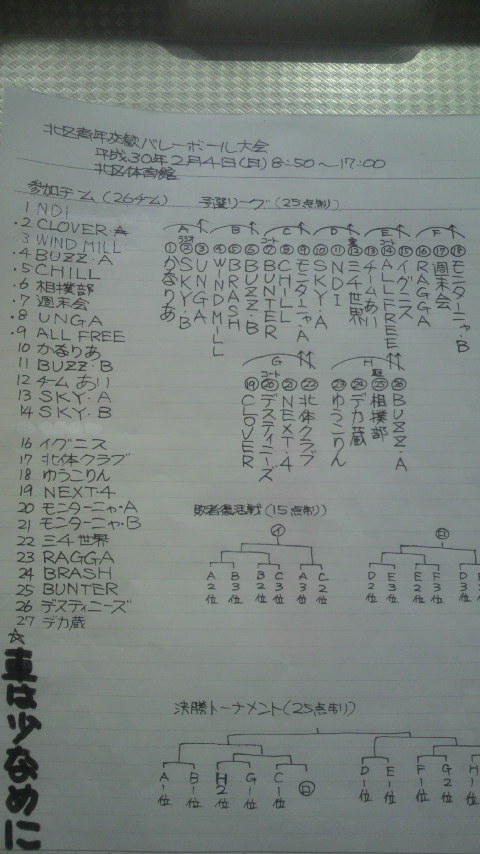 北区青年交歓バレーボール大会
平成30年2月4日(日)8:50～17:00
北区体育館
参加チーム(26チーム)
1 NDI
2 CLOVER
3 WIND MILL
4 BUZZ・A
5 CHILL
6 相撲部
7 週末会
8 UNGA
9 ALL FREE
10 かなりあ
11 BUZZ・B
12 チームあい
13 SKY・A
14 SKY・B
16 イグニス
17 北体クラブ
18 ゆうこりん
19 NEXT・4
20 モンターニャ・A
21 モンターニャ・B
22 三4世界
23 RAGGA
24 BRASH
25 BUNTER
26 デスティニーズ
27 デカ蔵
☆車は少なめに
予選リーグ(25点制)
A B C D E F
①かなりあ
②SKY・B
③UNGA
④WINDMILL
⑤BRASH
⑥BUZZ・B
⑦BUNTER
⑧CHILL
⑨モンターニャ・A
⑩SKY・A
⑪NDI
⑫三4世界
⑬チームあい
⑭ALLFREE
⑮イグニス
⑯RAGGA
⑰週末会
⑱モンターニャ・B
G H
⑲CLOVER
⑳デスティニーズ
㉑NEXT・4
㉒北体クラブ
㉓ゆうこりん
㉔デカ蔵
㉕相撲部
㉖BUZZ・A
敗者復活戦(15点制)
㋑ ㋺
A2位 B3位 B2位 C3位 A3位 C2位
D2位 E3位 E2位 F3位
決勝トーナメント(25点制)
A1位 B1位 H2位 G1位 C1位 ㋺
D1位 E1位 F1位 G2位 H1位